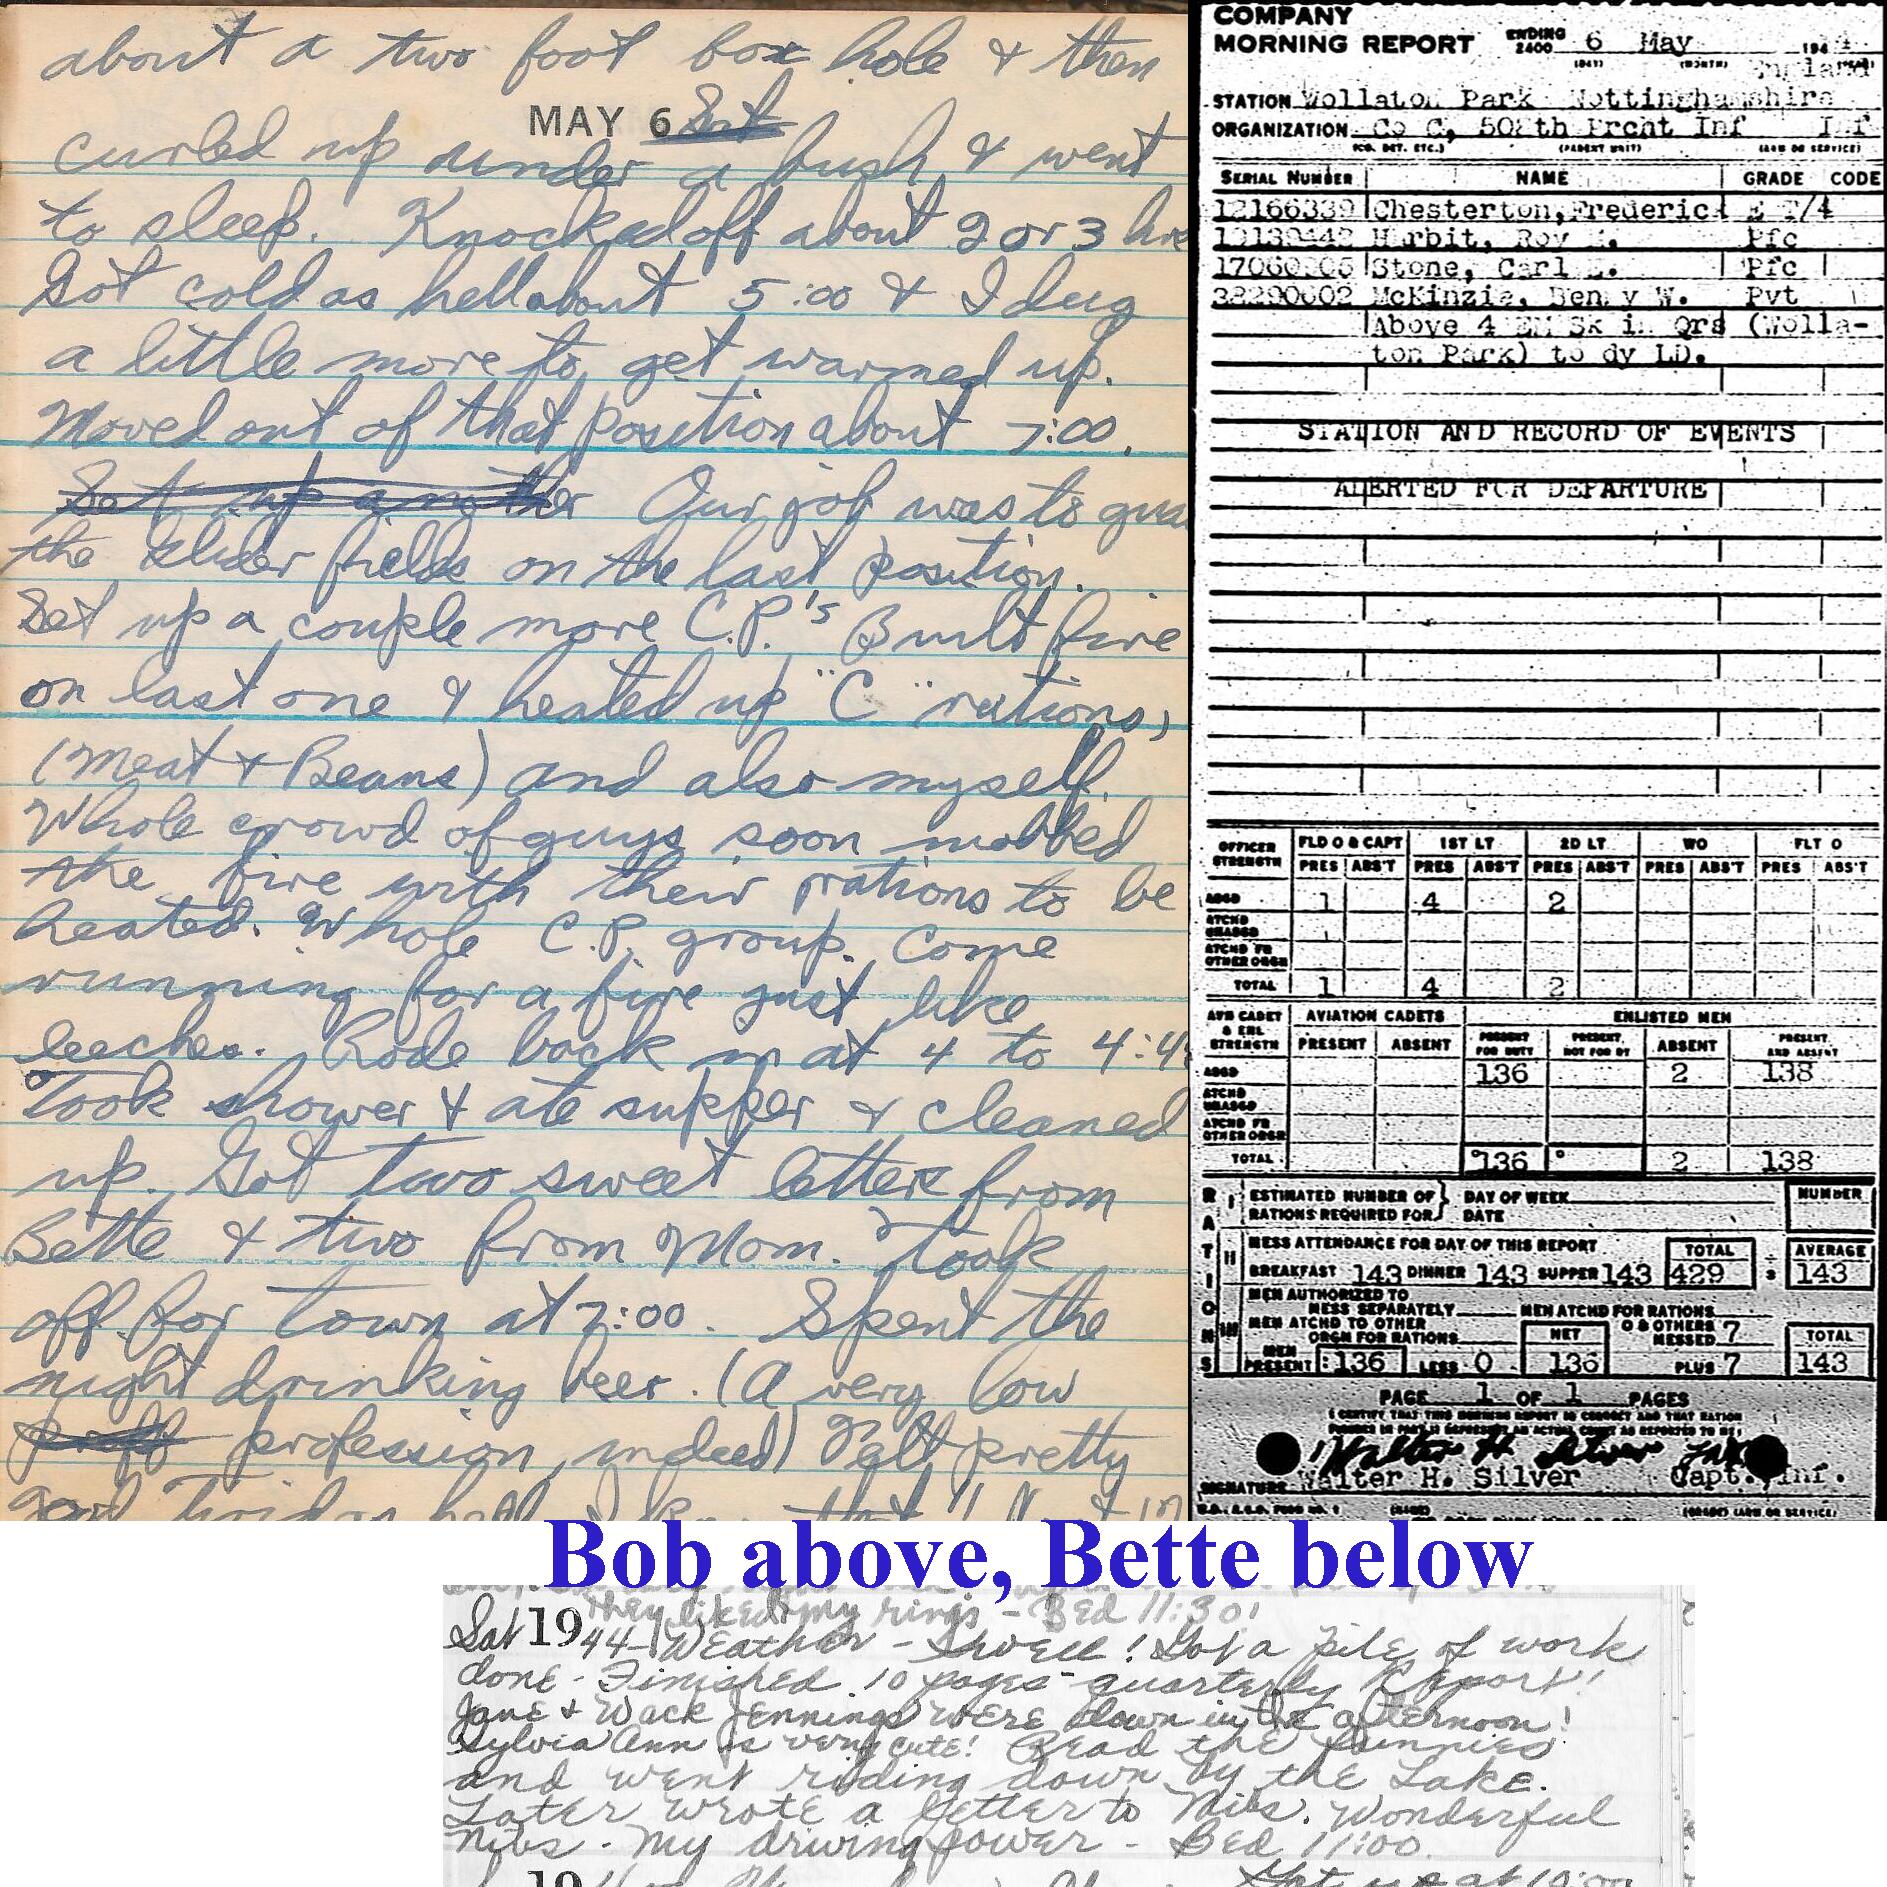 about a two foot box hole & then
MAY 6 Sat
curled up under a bush & went
to sleep. Knocked off about 2 or 3 hrs
Got cold as hell about 5:00 & I dug
a little more to get warmed up.
Moved out of that position about 7:00.
Set up another Our job was to gua
the glider fields on the last position.
Set up a couple more C.P.'s Built fire
on last one & heated up "C" rations,
(Meat & Beans) and also myself.
Whole crowd of guys soon mobbed
the fire with their rations to be
heated. Whole C.P. group. Come
running for a fire just like
leeches. Rode back in at 4 to 4:4
Took shower & ate supper & cleaned
up. Got two sweet letters from
Bette & two from Mom. Took
off for town at 7:00. Spent the
night drinking beer. (A very low
proff profession, indeed) Felt pretty
COMPANY
MORNING REPORT ENDING 2400 6 May 194
(DAY) (MONTH) (YEAR)
England
STATION Wollaton Park Nottinghamshire
ORGANIZATION Co C, 508th Prcht Inf Inf
(CO. DET. ETC.) (PARENT UNIT) (ARM OR SERVICE)
SERIAL NUMBER NAME GRADE CODE
12166339 Chesterton, Frederick E T/4
Roy Pfc
Stone, Carl Pfc
McKinzie, Pvt
Above 4 EM Sk in Qrs (Wolla-
ton Park) to dy LD.
STATION AND RECORD OF EVENTS
ALERTED FOR DEPARTURE
OFFICER STRENGTH FLD O & CAPT 1ST LT 2D LT WO FLT O
PRES ABS'T PRES ABS'T PRES ABS'T PRES ABS'T PRES ABS'T
ASGD 1 4 2
ATCHD UNASGD
ATCHD FR OTHER ORGN
TOTAL 1 4 2
AVN CADET & ENL STRENGTH AVIATION CADETS ENLISTED MEN
PRESENT ABSENT PRESENT FOR DUTY PRESENT NOT FOR DY ABSENT PRESENT AND ABSENT
ASGD 136 2 138
ATCHD UNASGD
ATCHD FR OTHER ORGN
TOTAL 136 2 138
RATIONS
I ESTIMATED NUMBER OF RATIONS REQUIRED FOR DAY OF WEEK DATE NUMBER
II MESS ATTENDANCE FOR DAY OF THIS REPORT TOTAL AVERAGE
BREAKFAST 143 DINNER 143 SUPPER 143 429 ÷ 3 143
III MEN AUTHORIZED TO MESS SEPARATELY MEN ATCHD FOR RATIONS
MEN ATCHD TO OTHER ORGN FOR RATIONS NET O & OTHERS MESSED 7 TOTAL
MEN PRESENT 136 LESS 0 136 PLUS 7 143
PAGE 1 OF 1 PAGES
I CERTIFY THAT THIS MORNING REPORT IS CORRECT AND THAT RATION
Walter H. Silver
SIGNATURE Walter H. Silver Capt., Inf.
W.D., A.G.O. FORM NO. 1 (NAME) (GRADE) (ARM OR SERVICE)
Bob above, Bette below
They liked my rings - Bed 11:30!
Sat 1944 - Weather - Swell! Got a pile of work
done - Finished 10 pages quarterly Report!
Jane & Wack Jennings were down in the afternoon!
Sylvia Ann is very cute! Read the funnies
and went riding down by the Lake.
Later wrote a letter to Nibs. Wonderful
Nibs - My driving power - Bed 11:00.
19
Got up at 10:00